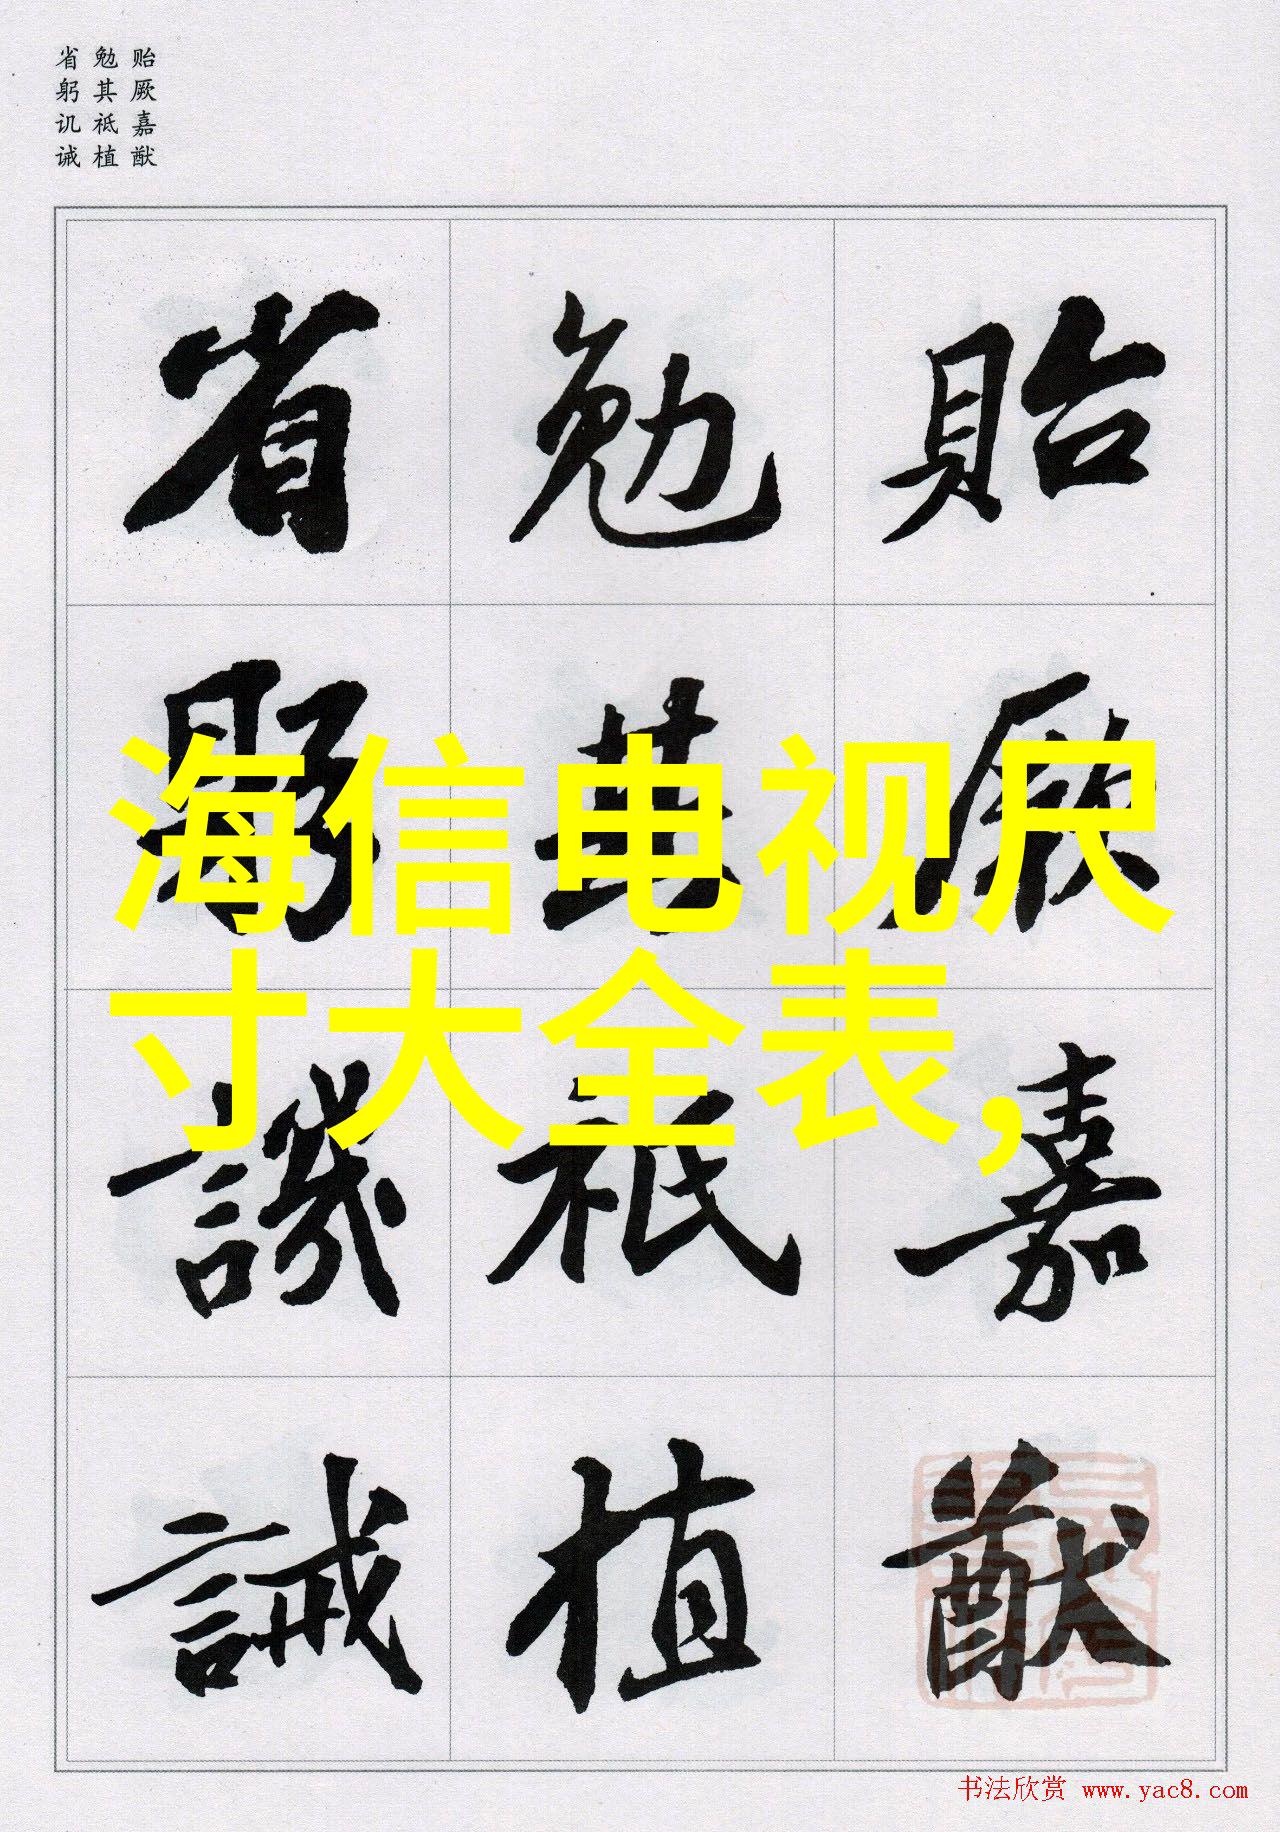 贻厥嘉猷
勉其祗植
省躬讥诫
貽厥嘉猷
勉其祗植
省躬譏誡
海信电视尺
寸大全表,
书法欣赏 www.yac8.com